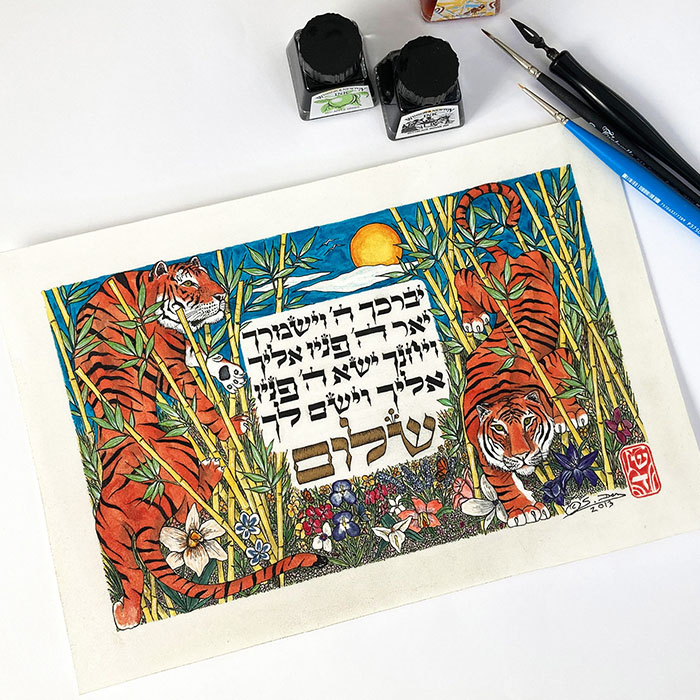 יברכך ה' וישמרך
יאר ה' פניו אליך
ויחנך ישא ה' פניו
אליך וישם לך
שלום
2013
INK